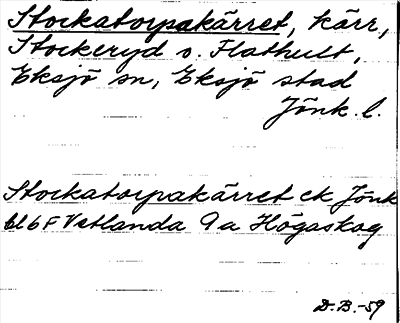 Stockatorpakärret, kärr,
Stockeryd o. Flathult,
Eksjö sn, Eksjö stad
Jönk. l.
Stockatorpakärret ek Jönk
bl 6F Vetlanda 9a Högaskog
D.B.-59